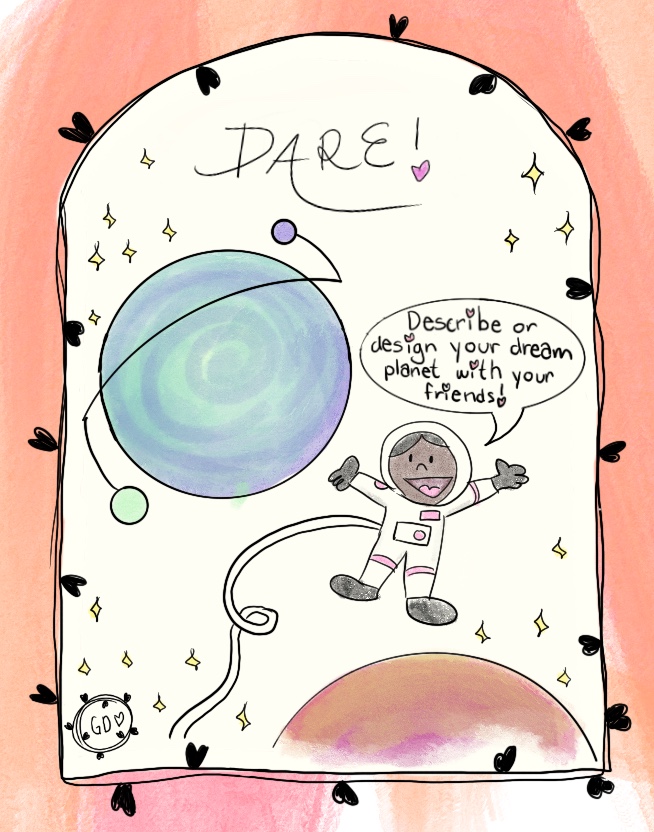 DARE!
Describe or
design your dream
planet with your
friends!
GD♡